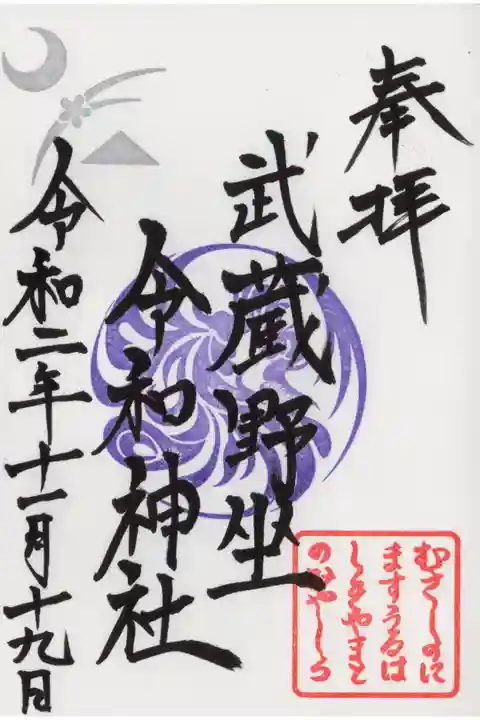 奉拝
武蔵野坐
令和神社
むさしのに
ますうるは
しきやまと
のみやしろ
令和二年十一月十九日